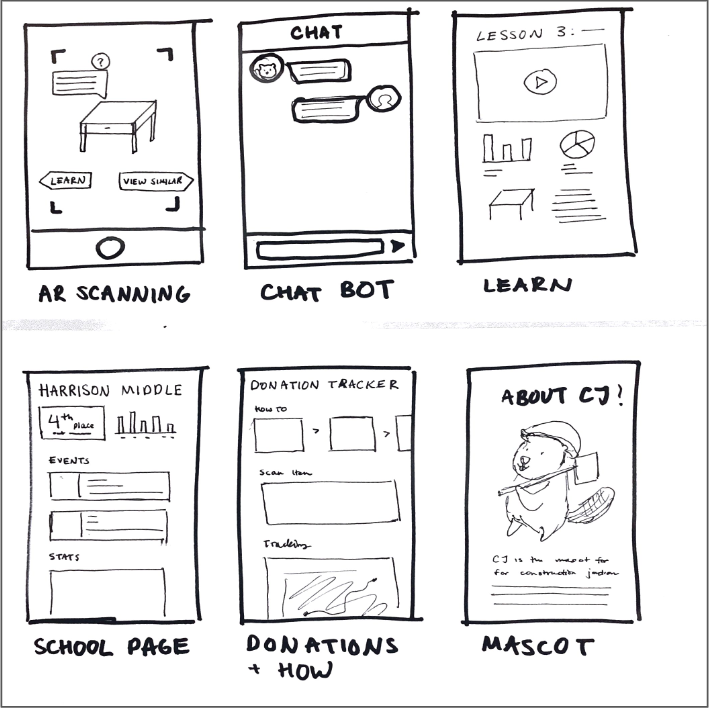 ?
LEARN
VIEW SIMILAR
AR SCANNING
CHAT
CHAT BOT
LESSON 3:
LEARN
HARRISON MIDDLE
4th place
EVENTS
STATS
SCHOOL PAGE
DONATION TRACKER
HOW TO
> >
Scan Item
Tracking
DONATIONS
+ HOW
ABOUT CJ!
CJ is the mascot for
for construction
MASCOT